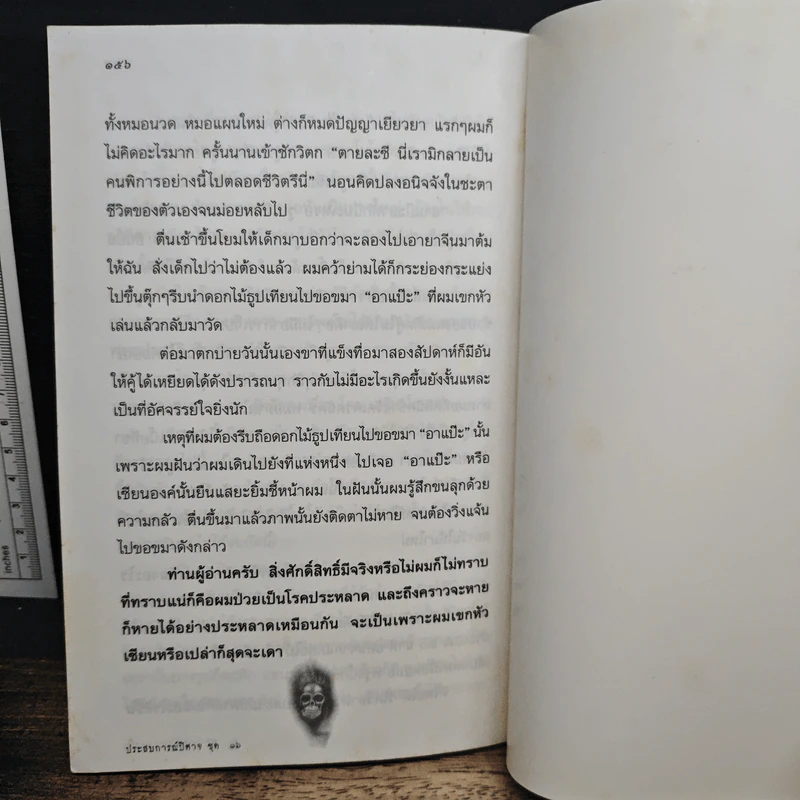 ๑๕๖
ทั้งหมอนวด หมอแผนใหม่ ต่างก็หมดปัญญาเยียวยา แรกๆผมก็
ไม่คิดอะไรมาก ครั้นนานเข้าชักวิตก “ตายละซี นี่เรามิกลายเป็น
คนพิการอย่างนี้ไปตลอดชีวิตรึนี่” นอนคิดปลงอนิจจังในชะตา
ชีวิตของตัวเองจนม่อยหลับไป
ตื่นเช้าขึ้นโยมให้เด็กมาบอกว่าจะลองไปเอายาจีนมาต้ม
ให้ฉัน สั่งเด็กไปว่าไม่ต้องแล้ว ผมคว้าย่ามได้ก็กระย่องกระแย่ง
ไปขึ้นตุ๊กๆรีบนำดอกไม้ธูปเทียนไปขอขมา “อาแป๊ะ” ที่ผมเขกหัว
เล่นแล้วกลับมาวัด
ต่อมาตกบ่ายวันนั้นเองขาที่แข็งทื่อมาสองสัปดาห์ก็มีอัน
ให้คู้ได้เหยียดได้ดังปรารถนา ราวกับไม่มีอะไรเกิดขึ้นยังงั้นแหละ
เป็นที่อัศจรรย์ใจยิ่งนัก
เหตุที่ผมต้องรีบถือดอกไม้ธูปเทียนไปขอขมา “อาแป๊ะ” นั้น
เพราะผมฝันว่าผมเดินไปยังที่แห่งหนึ่ง ไปเจอ “อาแป๊ะ” หรือ
เซียนองค์นั้นยืนแสยะยิ้มชี้หน้าผม ในฝันนั้นผมรู้สึกขนลุกด้วย
ความกลัว ตื่นขึ้นมาแล้วภาพนั้นยังติดตาไม่หาย จนต้องวิ่งแจ้น
ไปขอขมาดังกล่าว
ท่านผู้อ่านครับ สิ่งศักดิ์สิทธิ์มีจริงหรือไม่ผมก็ไม่ทราบ
ที่ทราบแน่ก็คือผมป่วยเป็นโรคประหลาด และถึงคราวจะหาย
ก็หายได้อย่างประหลาดเหมือนกัน จะเป็นเพราะผมเขกหัว
เซียนหรือเปล่าก็สุดจะเดา
ประสบการณ์ปีศาจ ชุด ๑๖
inches
1
2
3
4
5
6
7